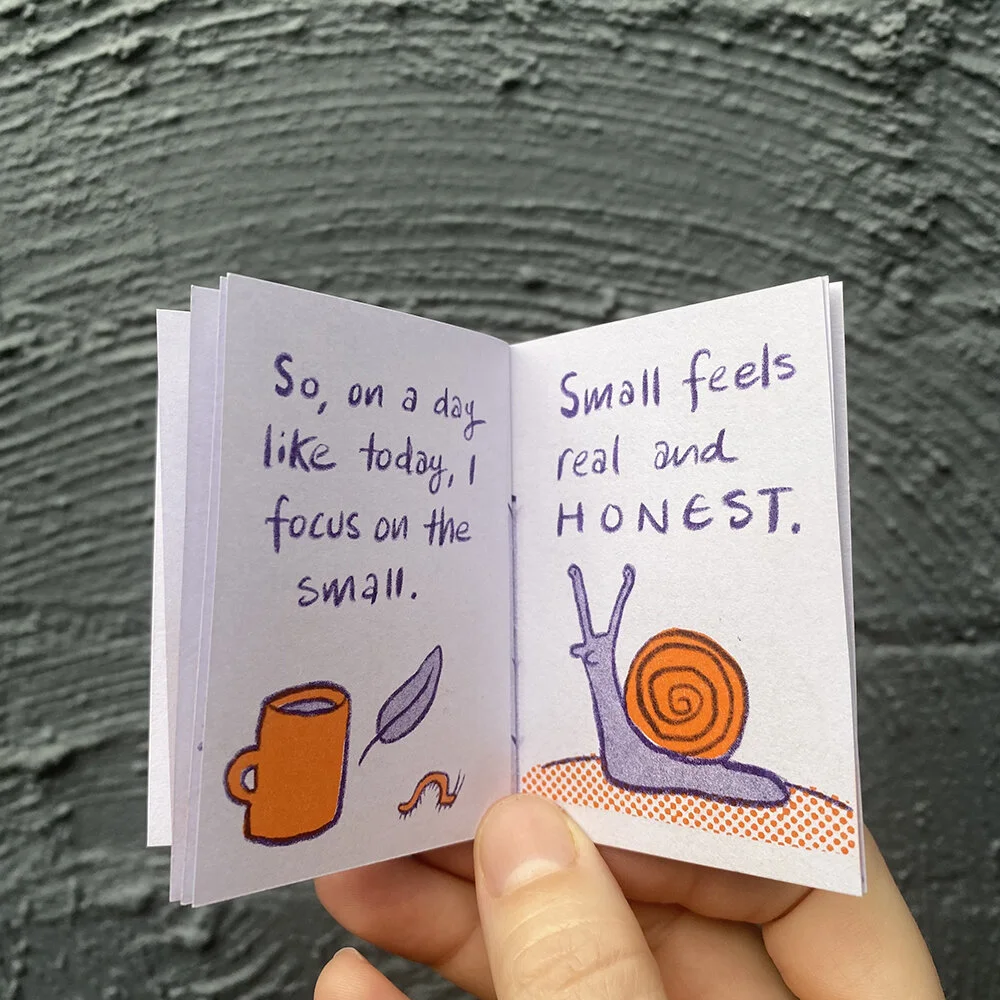 So, on a day
like today, I
focus on the
small.
Small feels
real and
HONEST.